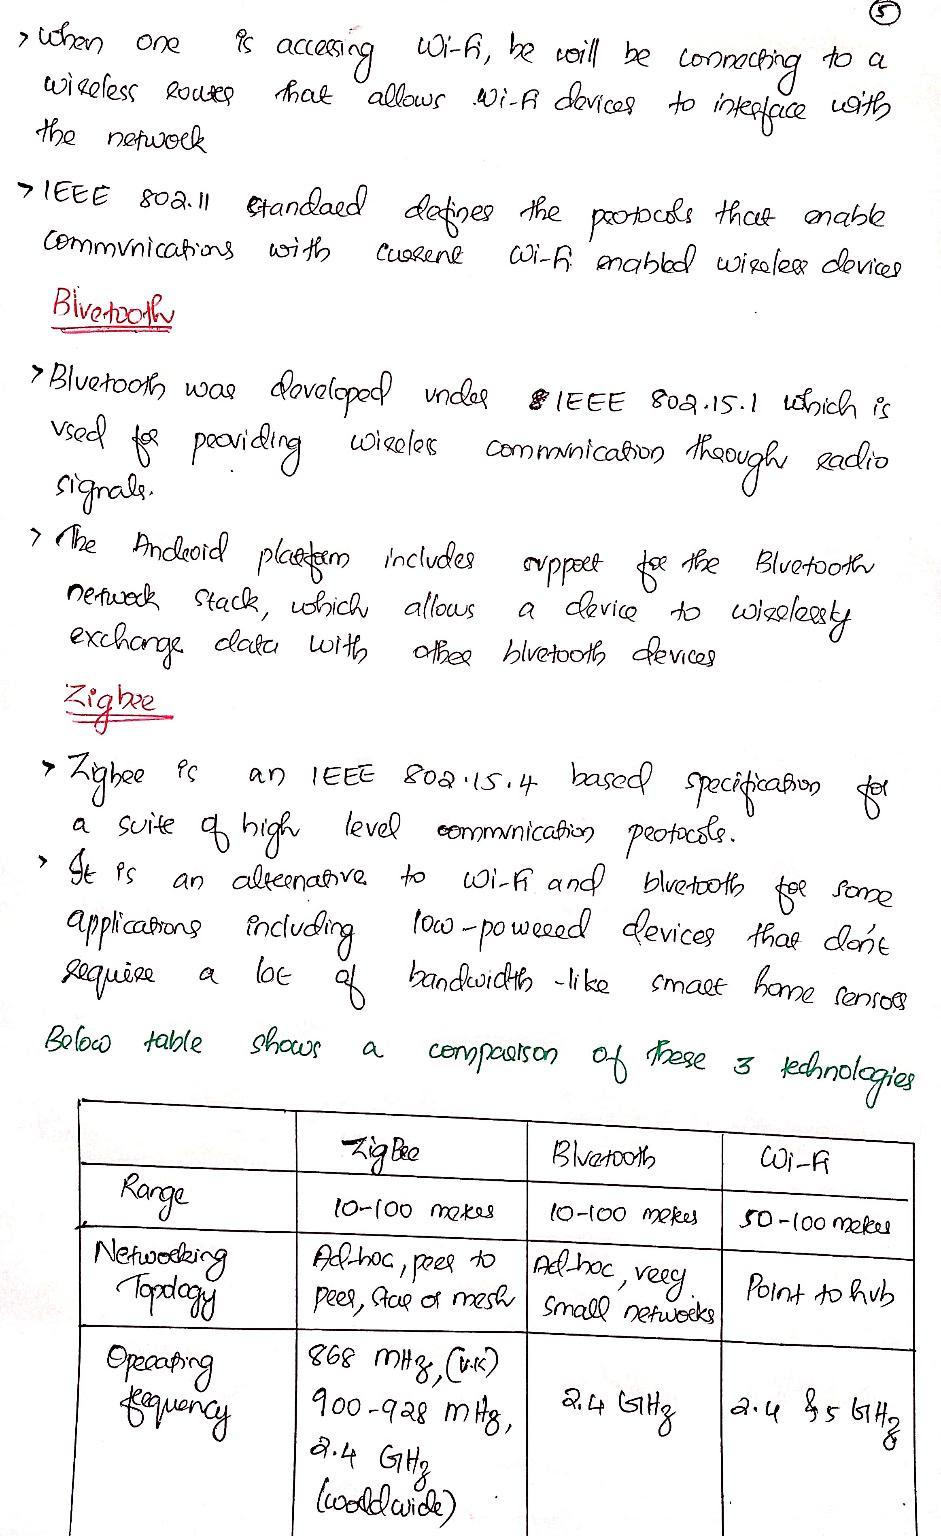 5
> When one is accessing Wi-Fi, he will be connecting to a
wireless router that allows Wi-Fi devices to interface with
the network
> IEEE 802.11 standard defines the protocols that enable
communications with current Wi-Fi enabled wireless devices
Bluetooth
> Bluetooth was developed under IEEE 802.15.1 which is
used for providing wireless communication through radio
signals.
> The Android platform includes support for the Bluetooth
network stack, which allows a device to wirelessly
exchange data with other bluetooth devices
Zigbee
> Zigbee is an IEEE 802.15.4 based specification for
a suite of high level communication protocols.
> It is an alternative to Wi-Fi and bluetooth for some
applications including low-powered devices that don't
require a lot of bandwidth - like smart home sensors
Below table shows a comparison of these 3 technologies
ZigBee Bluetooth Wi-Fi
Range 10-100 meters 10-100 meters 50-100 meters
Networking Ad-hoc, peer to Ad-hoc, very Point to hub
Topology peer, star or mesh small networks
Operating 868 MHz, (U.K) 2.4 GHz 2.4 & 5 GHz
frequency 900-928 MHz,
2.4 GHz
(worldwide)